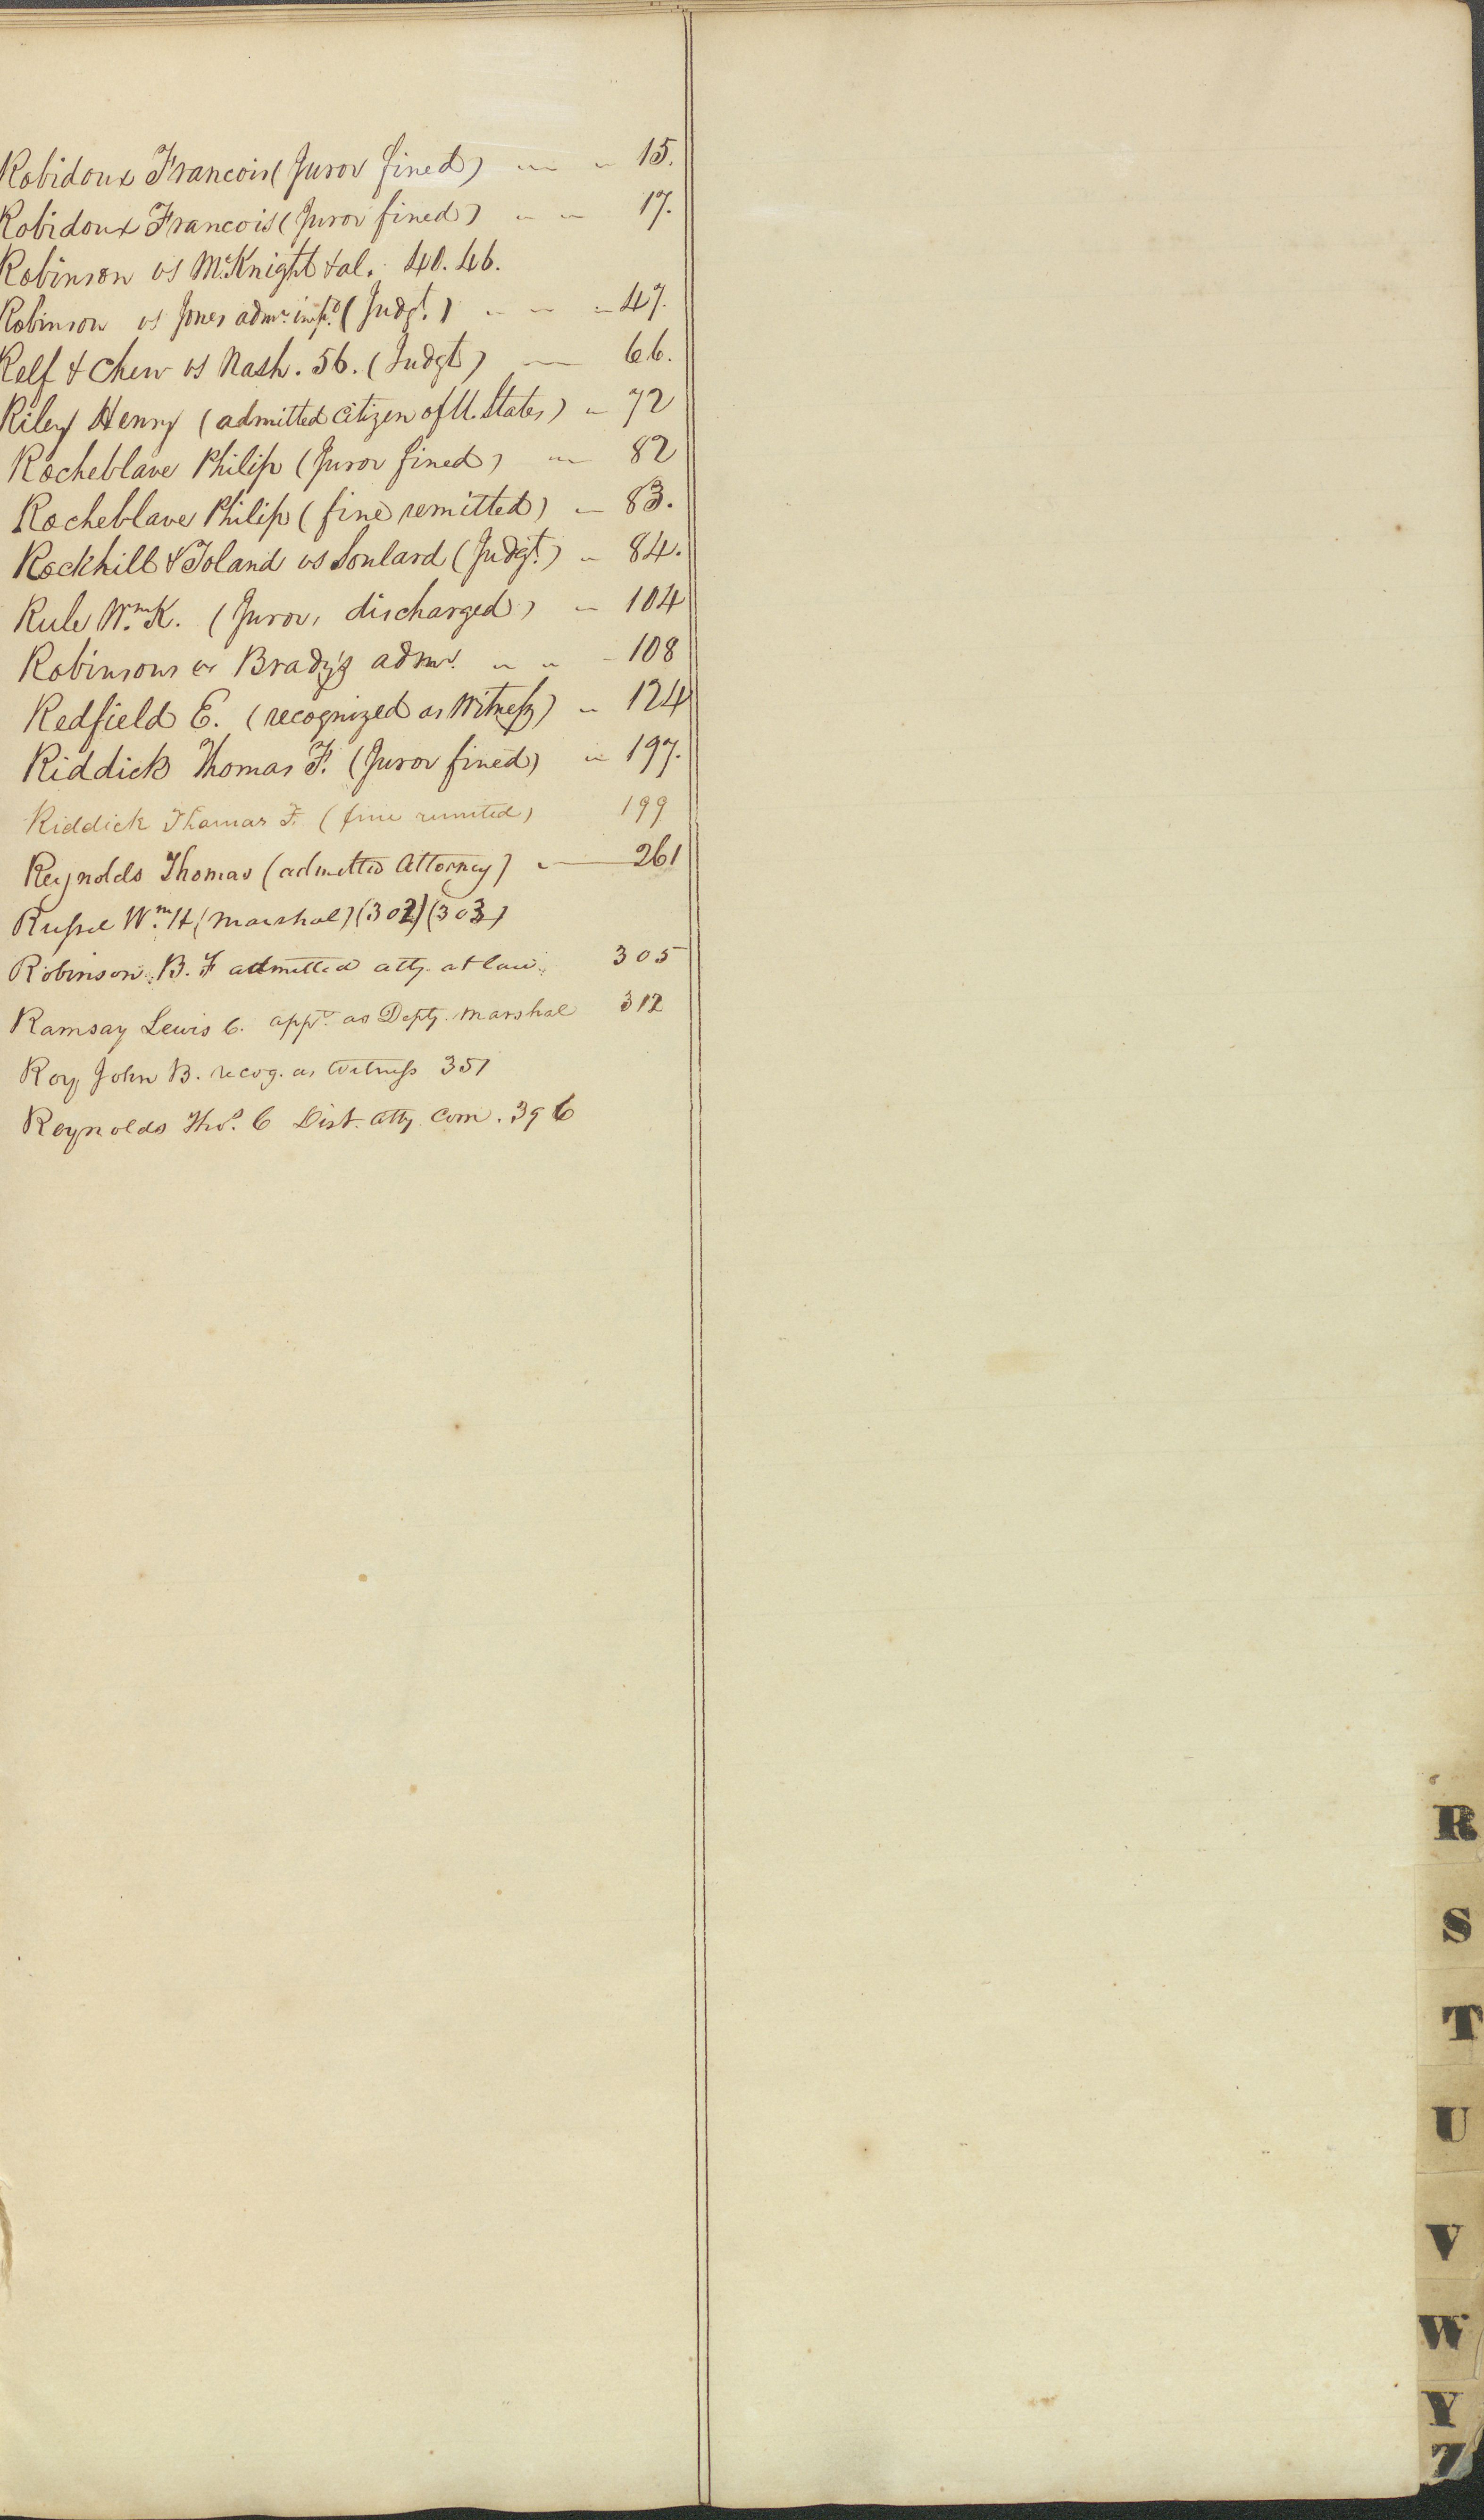 Robidoux Francois (Juror fined) 15.
Robidoux Francois (Juror fined) 17.
Robinson vs McKnight & al. 40. 46.
Robinson vs Jones admr. (Judgt.) 47.
Relf & Chew vs Nash. 56. (Judgt) 66.
Riley Henry (admitted Citizen of U. States) 72
Rocheblave Philip (Juror fined) 82
Rocheblave Philip (fine remitted) 83.
Rockhill & Toland vs Soulard (Judgt.) 84.
Rule Wm. K. (Juror, discharged) 104
Robinsons vs Brady's admr. 108
Redfield E. (recognized as Witness) 124
Riddick Thomas F. (Juror fined) 197.
Riddick Thomas F. (fine remitted) 199
Reynolds Thomas (admitted Attorney) 261
Russel Wm. H (Marshal) (302) (303)
Robinson B. F admitted atty. at law. 305
Ramsay Lewis C. appd. as Depty. Marshal 312
Roy John B. recog. as Witness 351
Reynolds Thos. C Dist. Atty Com. 396
R
S
T
U
V
W
Y
Z